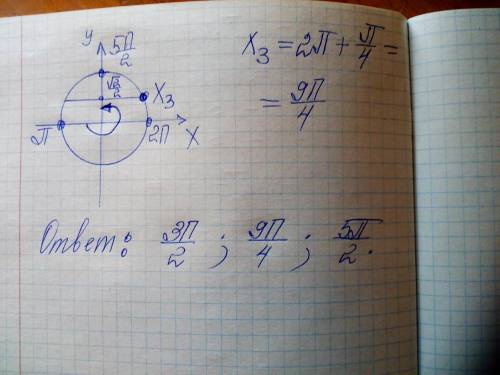 y
5π/2
√2/2
x₃
π
2π
x
x₃ = 2π + π/4 =
= 9π/4
Ответ: 3π/2 ; 9π/4 ; 5π/2.